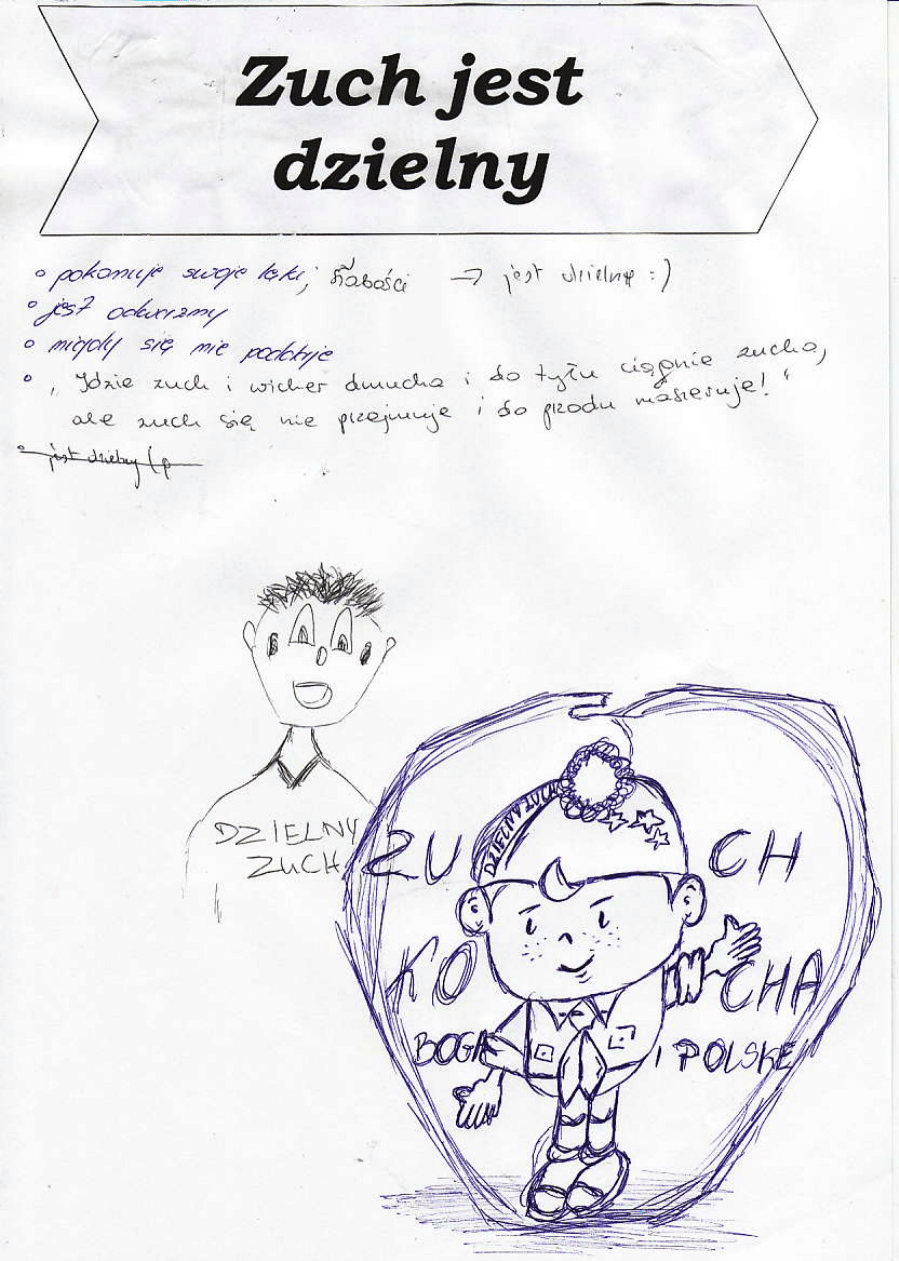 Zuch jest
dzielny
pokonuje swoje lęki, słabości → jest dzielny :)
jest odważny
nigdy się nie poddaje
"Idzie zuch i wicher dmucha i do tyłu ciągnie zucha,
ale zuch się nie przejmuje i do przodu maszeruje!"
jest dzielny (p
DZIELNY
ZUCH
DZIELNY ZUCH
ZU CH
KO CHA
BOGA I POLSKĘ